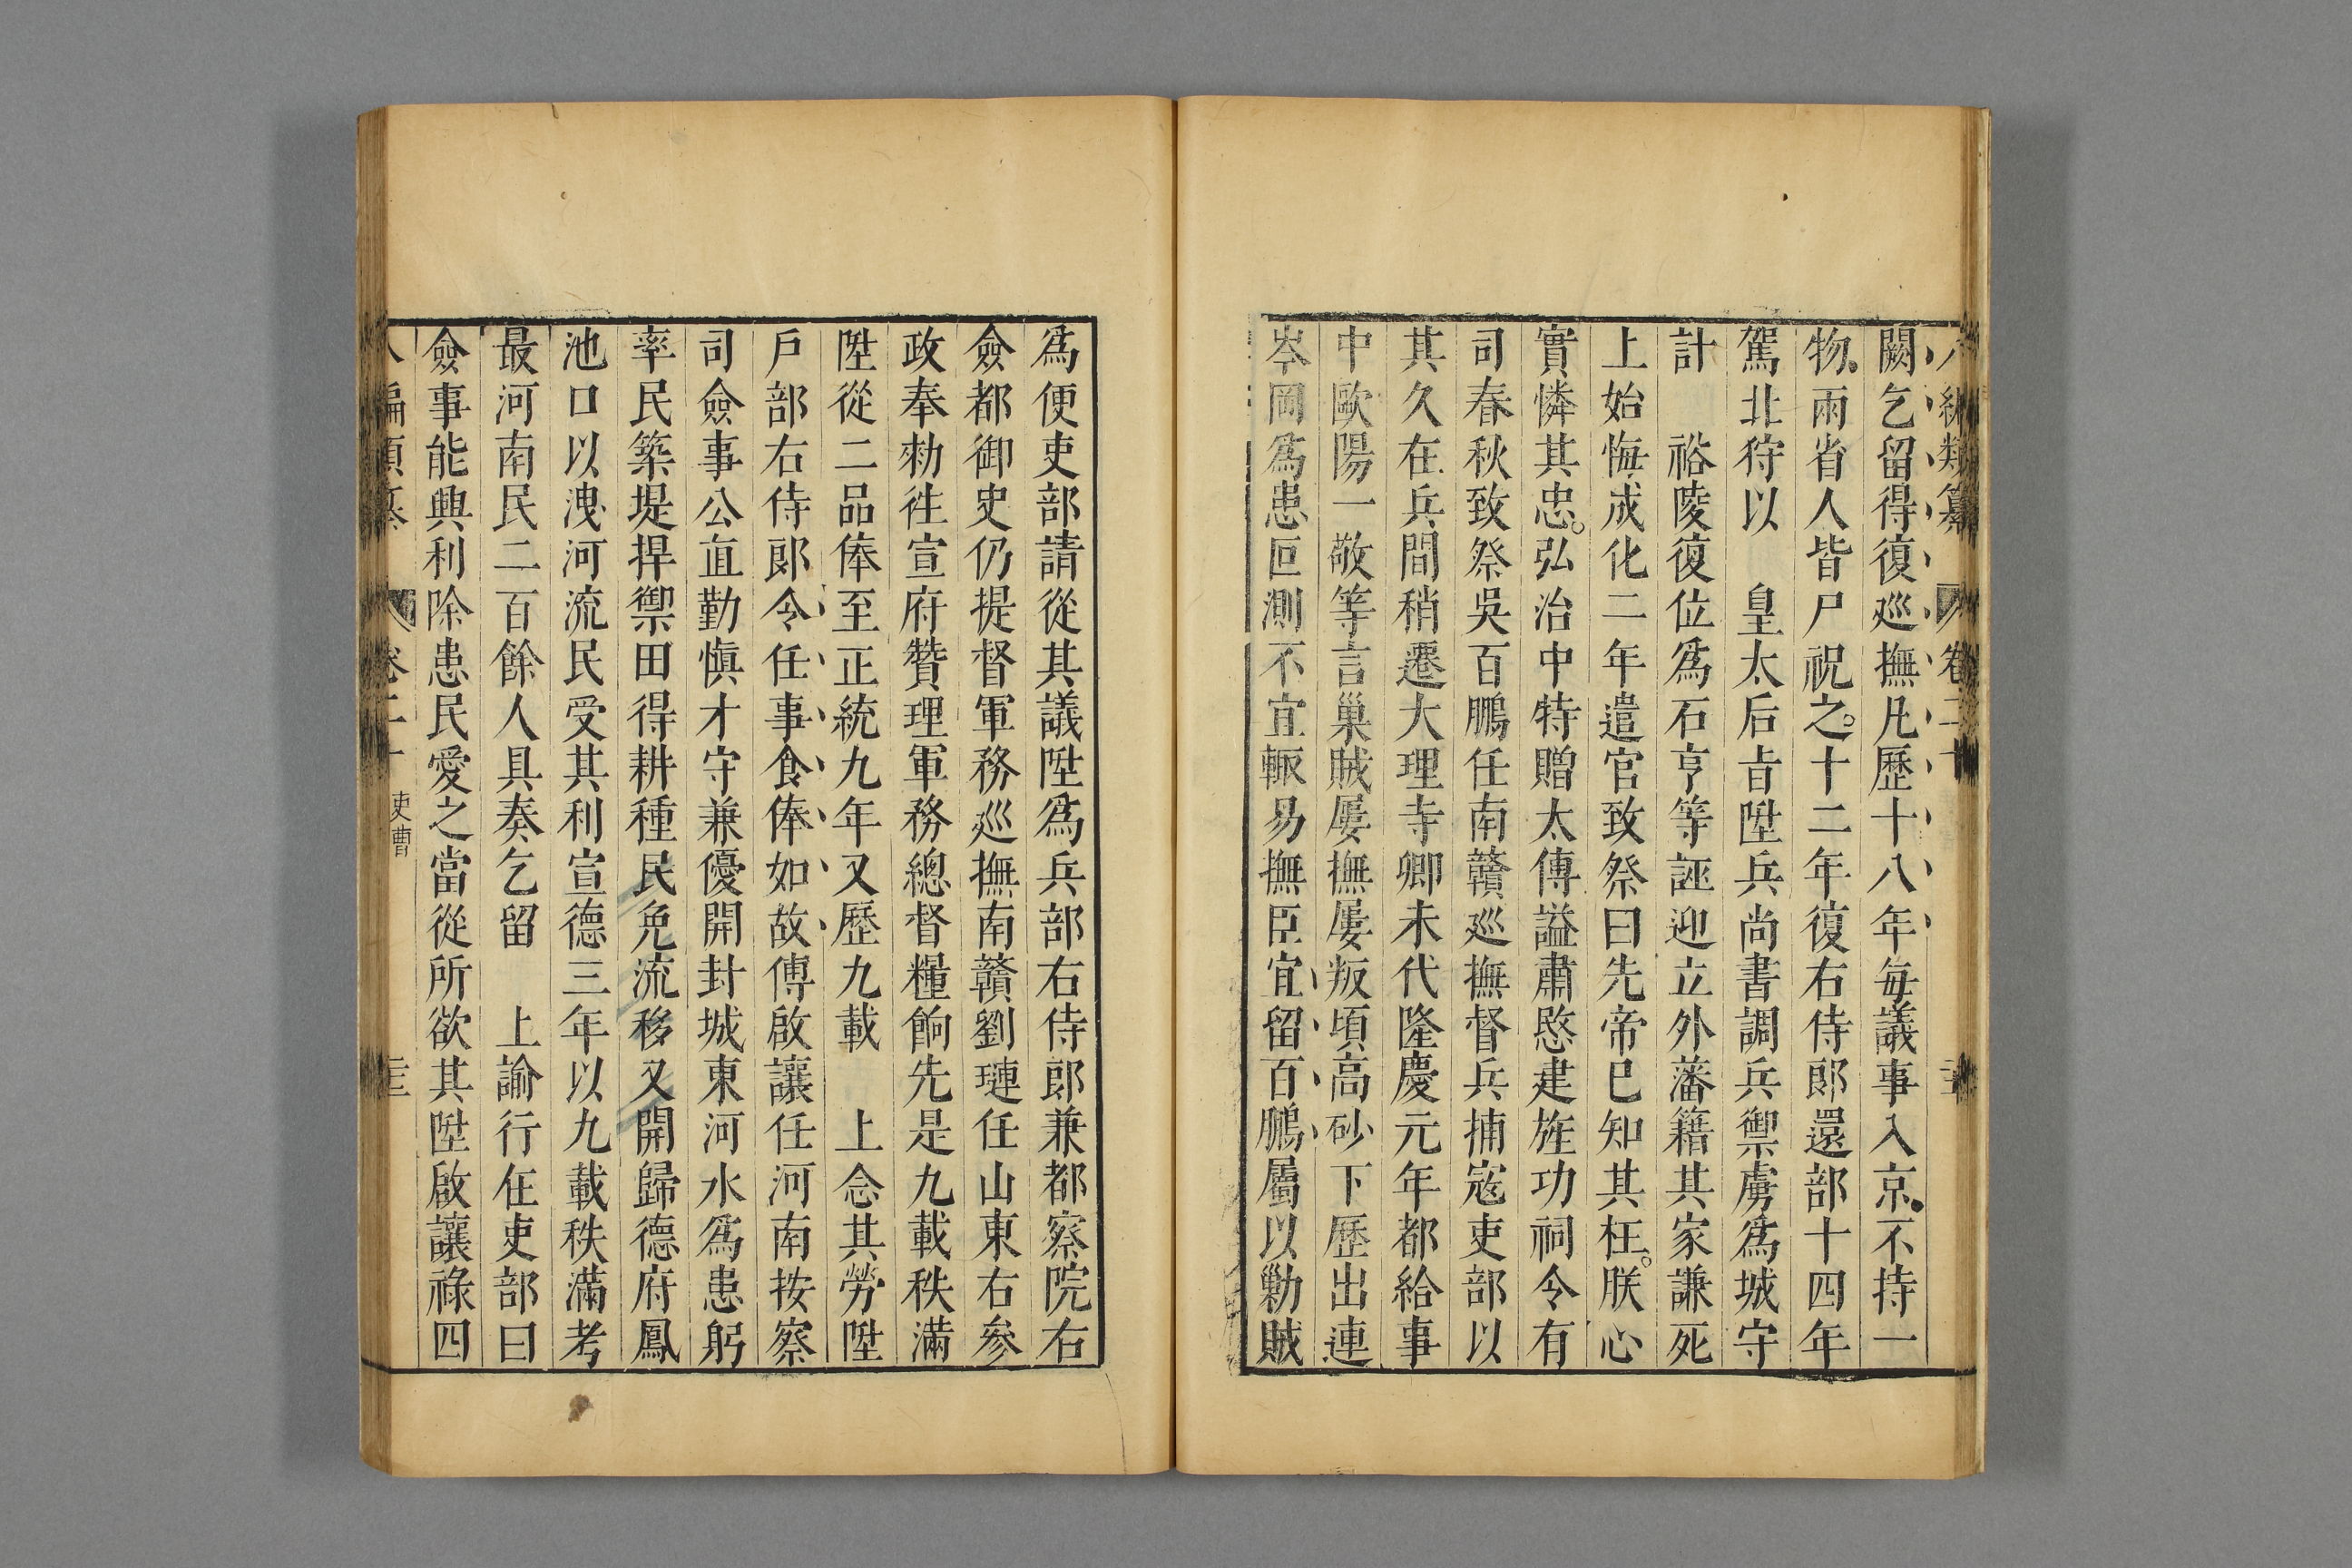 八編類纂 卷二十
闕乞留得復廵撫凡歷十八年每議事入京不持一
物兩省人皆尸祝之十二年復右侍郎還部十四年
駕北狩以 皇太后旨陞兵尚書調兵禦虜爲城守
計 裕陵復位爲石亨等誣迎立外藩籍其家謙死
上始悔成化二年遣官致祭曰先帝已知其枉朕心
實憐其忠弘治中特贈太傅謚肅愍建旌功祠令有
司春秋致祭吳百鵬任南贛廵撫督兵捕寇吏部以
其久在兵間稍遷大理寺卿未代隆慶元年都給事
中歐陽一敬等言巢賊屡撫屡叛頃高砂下歷出連
岑岡爲患叵測不宜輙易撫臣宜留百鵬屬以勦賊
爲便吏部請從其議陞爲兵部右侍郎兼都察院右
僉都御史仍提督軍務廵撫南贛劉璉任山東右叅
政奉勑徃宣府贊理軍務總督糧餉先是九載秩滿
陞從二品俸至正統九年又歷九載 上念其勞陞
戶部右侍郎令任事食俸如故傅啟讓任河南按察
司僉事公直勤愼才守兼優開封城東河水爲患躬
率民築堤捍禦田得耕種民免流移又開歸德府鳳
池口以洩河流民受其利宣德三年以九載秩滿考
最河南民二百餘人具奏乞留 上諭行在吏部曰
僉事能興利除患民愛之當從所欲其陞啟讓祿四
八編類纂 卷二十 吏曹